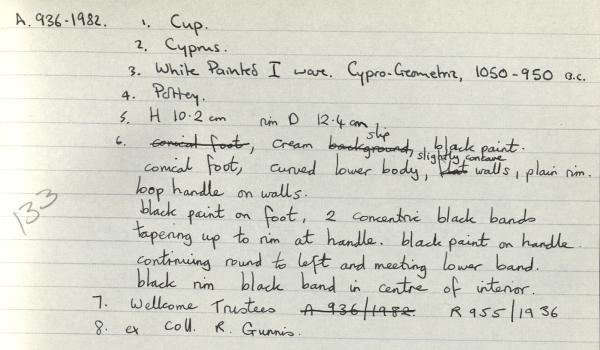 A.936-1982. 1. Cup.
2. Cyprus.
3. White Painted I ware. Cypro-Geometric, 1050-950 B.C.
4. Pottery.
5. H 10.2 cm rim D 12.4 cm
6. conical foot, cream background, slip black paint.
conical foot, curved lower body, flat slightly concave walls, plain rim.
loop handle on walls.
black paint on foot, 2 concentric black bands
tapering up to rim at handle. black paint on handle
continuing round to left and meeting lower band.
black rim black band in centre of interior.
7. Wellcome Trustees A 936/1982. R 955/1936
8. ex Coll. R. Gunnis.
133